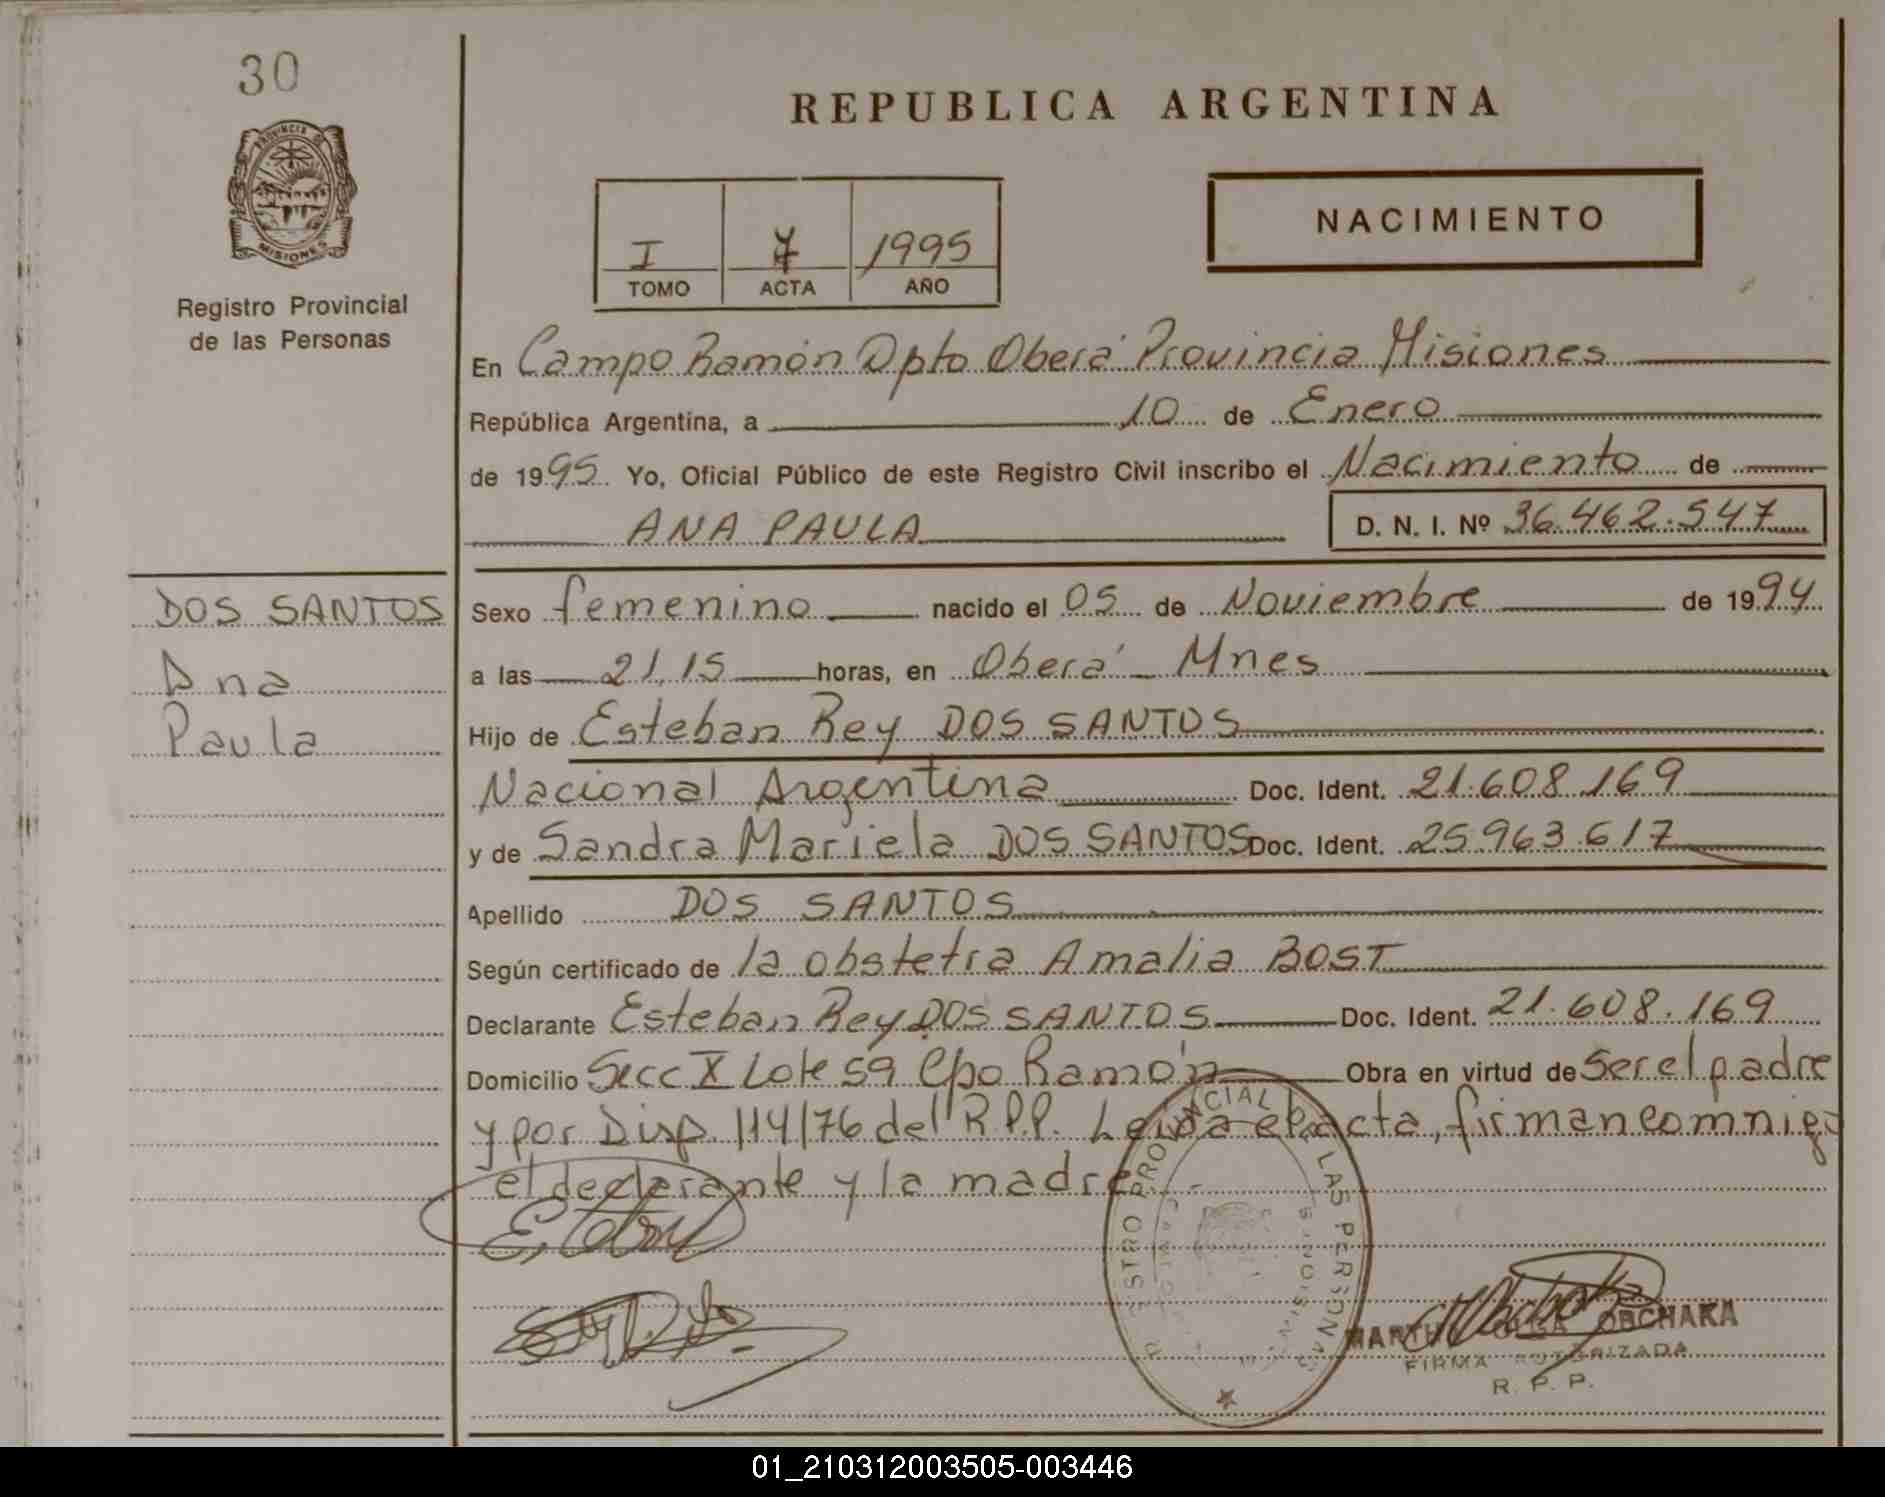 30
REPUBLICA ARGENTINA
PROVINCIA DE
MISIONES
Registro Provincial
de las Personas
I 7 1995
TOMO ACTA AÑO
NACIMIENTO
En Campo Ramón Dpto Oberá Provincia Misiones
República Argentina, a 10 de Enero
de 1995 Yo, Oficial Público de este Registro Civil inscribo el Nacimiento de
ANA PAULA D. N. I. Nº 36.462.547
DOS SANTOS
Ana
Paula
Sexo femenino nacido el 05 de Noviembre de 1994
a las 21,15 horas, en Oberá - Mnes
Hijo de Esteban Rey DOS SANTOS
Nacional Argentina Doc. Ident. 21.608.169
y de Sandra Mariela DOS SANTOS Doc. Ident. 25.963.617
Apellido DOS SANTOS
Según certificado de la obstetra Amalia BOST
Declarante Esteban Rey DOS SANTOS Doc. Ident. 21.608.169
Domicilio Secc X Lote 59 Cpo Ramón Obra en virtud de ser el padre
y por Disp 114/76 del R.P.P. Leída el acta, firman comnigo
el declarante y la madre
REGISTRO PROVINCIAL DE LAS PERSONAS
MISIONES
OLGA ORCHAKA
FIRMA AUTORIZADA
R. P. P.
01_210312003505-003446